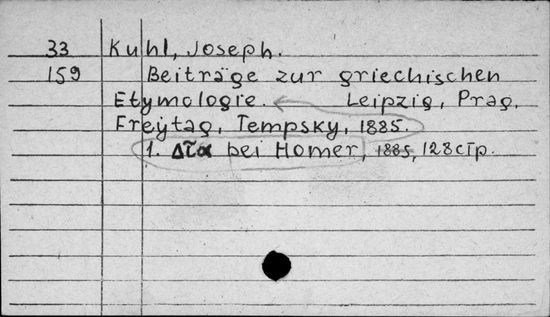 33 Kuhl, Joseph.
159 Beiträge zur griechischen
Etymologie. Leipzig, Prag,
Freytag, Tempsky, 1885.
1. Διά bei Homer, 1885, 128 стр.